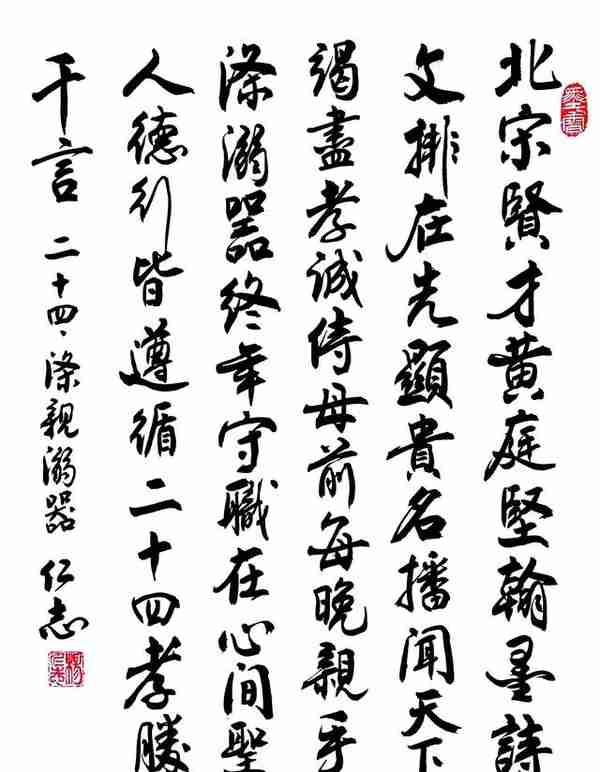 北宋賢才黄庭堅翰墨詩
文排在先顯貴名播聞天下
竭盡孝誠侍母前每晚親手
滌溺器終年守職在心間聖
人德行皆遵循二十四孝勝
千言
二十四、滌親溺器 仁志